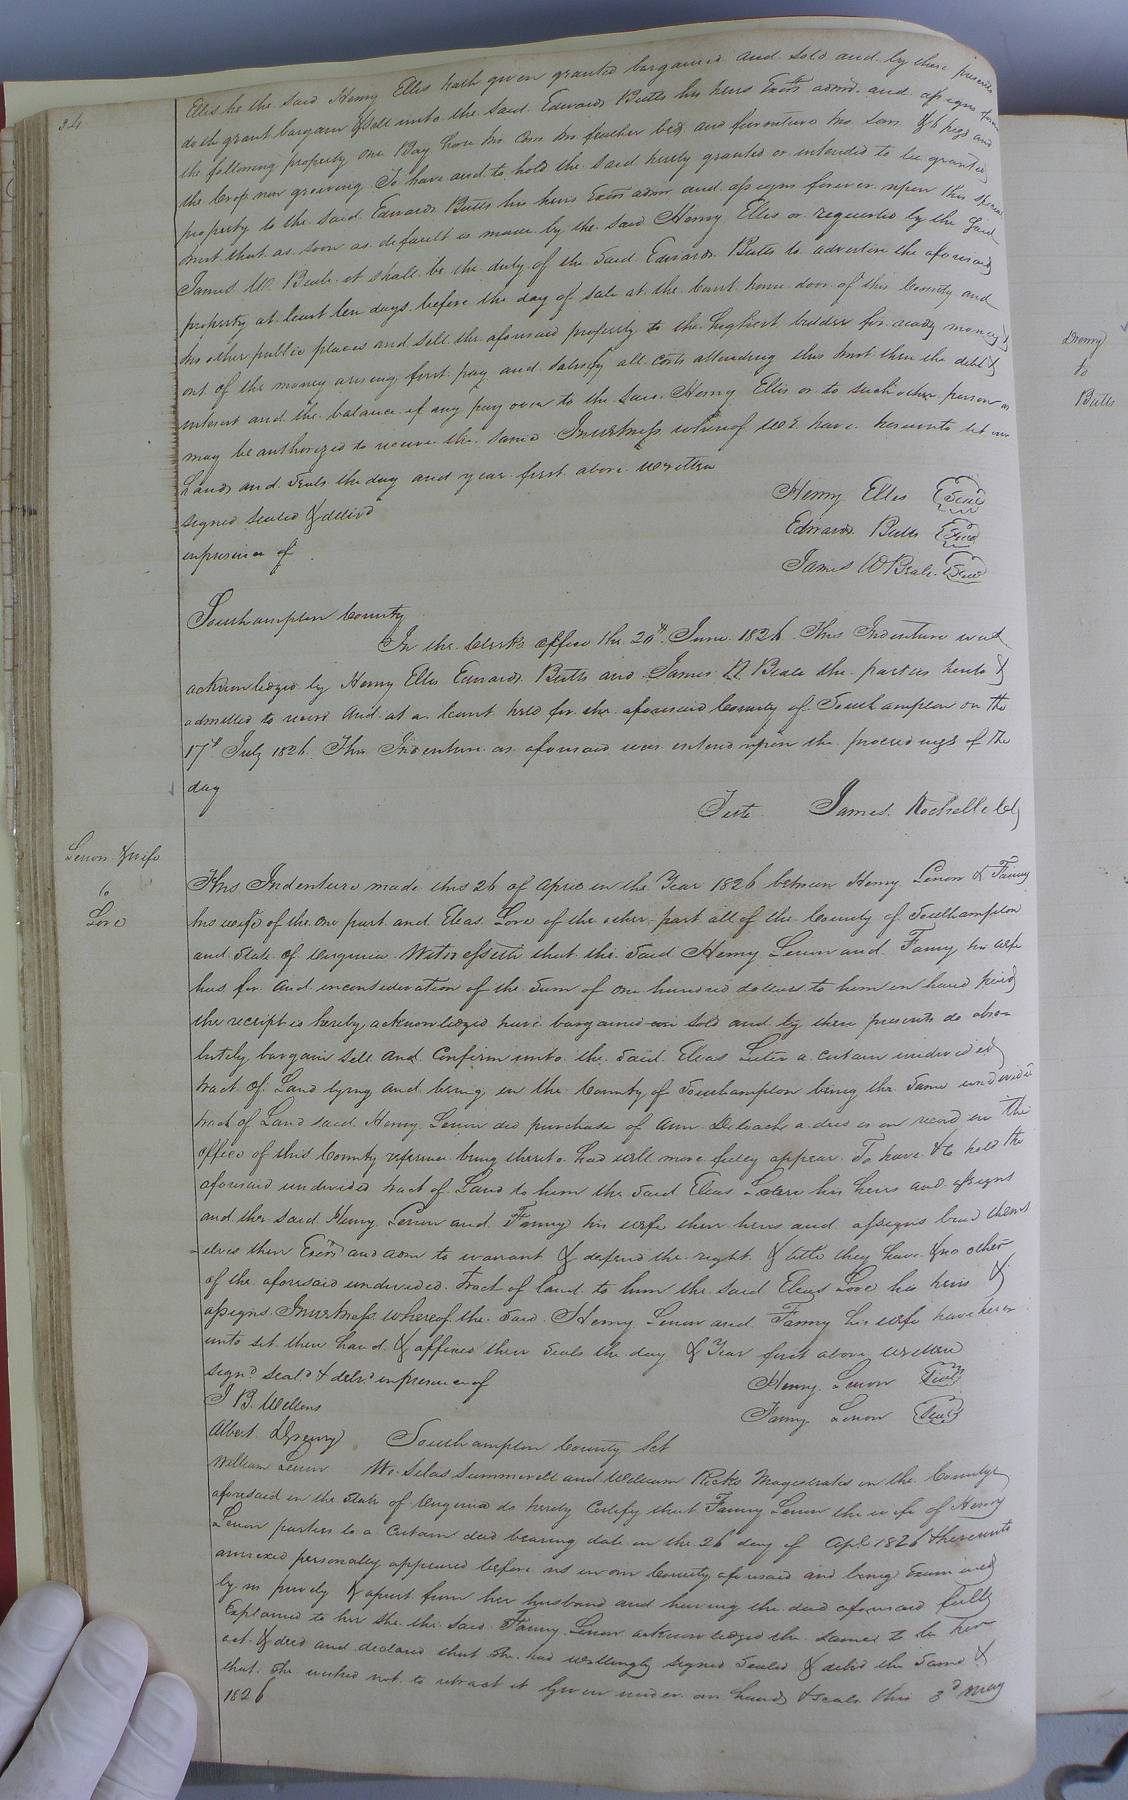 34
Ellis he the said Henry Ellis hath given granted bargained and sold and by these presents
doth grant bargain & sell unto the said Edward Butts his heirs Exors admr. and assigns
the following property one Bay horse two Cows two feather beds and furniture two sows & 6 hogs and
the Crop now growing To have and to hold the said hereby granted or intended to be granted
property to the said Edward Butts his heirs Exors admr and assigns forever upon this special
trust that as soon as default is made by the said Henry Ellis or requested by the said
James W. Beale it shall be the duty of the said Edward Butts to advertise the aforesaid
property at least ten days before the day of sale at the Court house door of this County and
two other public places and sell the aforesaid property to the highest bidder for ready money &
out of the money arising first pay and satisfy all costs attending this trust then the debt &
interest and the balance if any pay over to the said Henry Ellis or to such other person as
may be authorized to receive the same Inwitness whereof we have hereunto set our
hands and seals the day and year first above written
signed sealed & delivd
inpresence of
Henry Ellis Seal
Edward Butts Seal
James W Beale Seal
Southampton County
In the Clerks office the 20th June 1826 This Indenture was
acknowledged by Henry Ellis Edward Butts and James W Beale the parties hereto &
admitted to record And at a Court held for the aforesaid County of Southampton on the
17th July 1826 This Indenture as aforesaid was entered upon the proceedings of the
day
Teste James Rochelle Clk
Lenow & wife
to
Love
This Indenture made this 26 of April in the Year 1826 between Henry Lenow & Fanny
his wife of the one part and Elias Love of the other part all of the County of Southampton
and State of Virginia Witnesseth that the said Henry Lenow and Fanny his wife
has for and inconsideration of the sum of one hundred dollars to them in hand paid
the receipt is hereby acknowledged have bargained sold and by these presents do abso-
lutely bargain sell and Confirm unto the said Elias a certain undivided
tract of Land lying and being in the County of Southampton being the same undivided
tract of Land said Henry Lenow did purchase of Ann Deloach a deed is on record in the
office of this County reference being thereto had will more fully appear To have & to hold the
aforesaid undivided tract of Land to him the said Elias his heirs and assigns
and the said Henry Lenow and Fanny his wife their heirs and assigns bind thems
elves their Exors and adm to warrant & defend the right & title they have & no other
of the aforesaid undivided tract of land to him the said Elias Love his heirs &
assigns Inwitness whereof the said Henry Lenow and Fanny his wife have here
unto set their hand & affixed their seals the day & Year first above written
signd seald & delivd inpresence of
Henry Lenow Seal
J B. Wellons
Fanny Lenow Seal
Albert Drewry
Southampton County Sct
William Lenow We Silas Summerell and William Ricks Magistrates in the County
aforesaid in the State of Virginia do hereby Certify that Fanny Lenow the wife of Henry
Lenow parties to a Certain deed bearing date on the 26 day of Apl 1826 & hereunto
annexed personally appeared before us in our County aforesaid and being Examined
by us privily & apart from her husband and having the deed aforesaid fully
Explained to her she the said Fanny Lenow acknowledged the same to be her
act & deed and declared that she had willingly signed sealed & delivd the same &
that she wished not to retract it Given under our hands & seals this 3d May
1826
Drewry
to
Butts